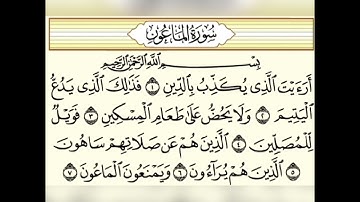 سُورَةُ المَاعُونِ
بِسْمِ اللَّهِ الرَّحْمَٰنِ الرَّحِيمِ
أَرَءَيْتَ الَّذِى يُكَذِّبُ بِالدِّينِ ١ فَذَٰلِكَ الَّذِى يَدُعُّ
الْيَتِيمَ ٢ وَلَا يَحُضُّ عَلَىٰ طَعَامِ الْمِسْكِينِ ٣ فَوَيْلٌ
لِّلْمُصَلِّينَ ٤ الَّذِينَ هُمْ عَن صَلَاتِهِمْ سَاهُونَ
٥ الَّذِينَ هُمْ يُرَآءُونَ ٦ وَيَمْنَعُونَ الْمَاعُونَ ٧